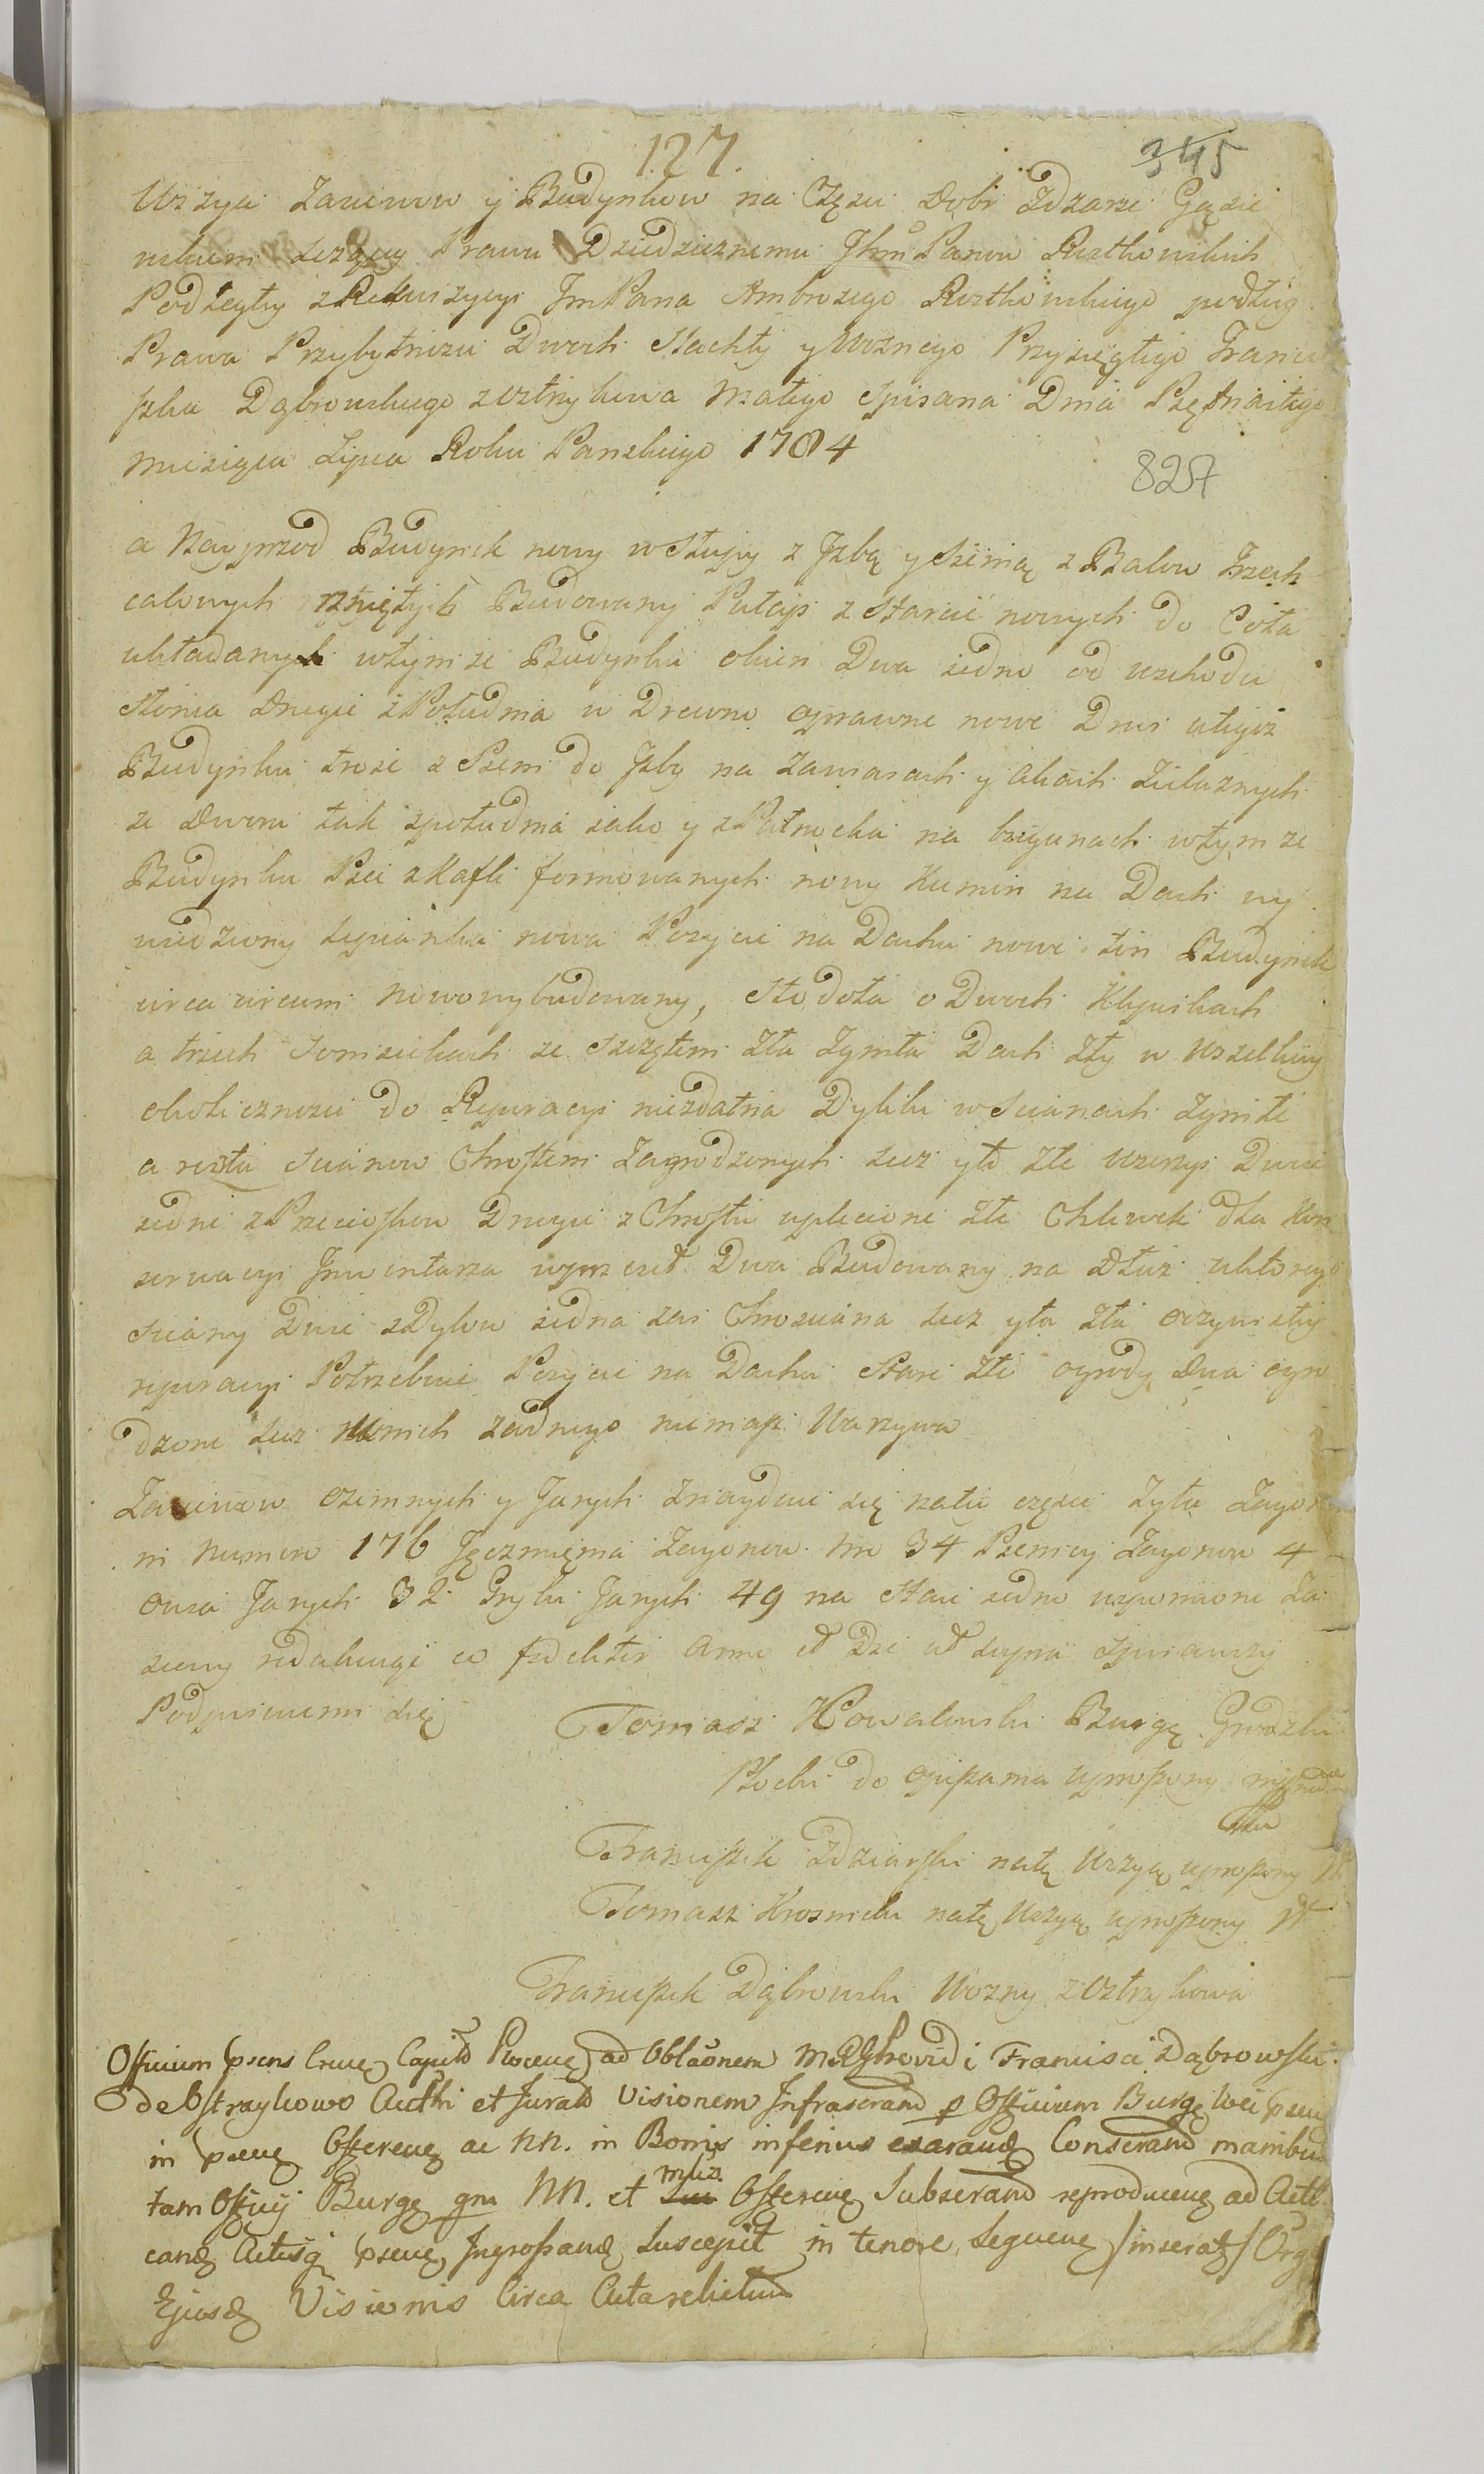 127.
345
Wizya Zasiewow y Budynkow na Częsci Dobr Zdzarze Gąsie
wskiem Lezący Prawu Dziedzicznemu Jhm Panow Rostkowskich
Podległy z Rekwizycyi Jm Pana Ambrozego Rostkowskiego podług
Prawa Przybytnosci Dwoch Slachty y Woznego Przysięgłego Franci
szka Dąbrowskiego z Ostrzykowa Małego Spisana Dnia Piętnastego
Miesiąca Lipca Roku Panskiego 1784
827
a Nayprzod Budynek nowy w Słupy z Jzbą y Sienią z Balow Trzech
calowych rzniętych Budowany Pułap z Tarcic nowych do Poła
układanych wtymze Budynku okien Dwa jedno od wschodu
słonca drugie z Południa w Drewno oprawne nowe Drzwi utegoz
Budynku troie z Sieni do Jzby na Zawiasach y hakach Zielaznych
ze dworu tak zpołudnia iako y z Pułnocka na biegunach wtymze
Budynku Piec z Kafli formowanych nowy Kumin na Dach wy
wiedziony Lepianka nowa Poszycie na Dachu nowe ten Budynek
circa circum nowowybudowany, Stodoła o Dwoch Klepiskach
a trzech Somsiekach ze szczętem zła zgniła Dach zły w wszelkiey
okolicznosci do Reperacyi niezdatna Dylilu w Scianach zgniłe
a reszta Scianow Chrostem Zagrodzonych lecz y to złe Wierzeje Dwie
jedne z Przeciosków Drugie z Chrostu uplecione złe Chlewek dla Kon
serwacyi Jnwentarza wprzeciw Dwa Budowany na Dłuż u ktorego
sciany Dwie z Dylow jedna zas Chrosciana lecz y ta zła oczywistey
reperacyi Potrzebuie Poszycie na Dachu Stare złe ogrody dwa ogro
dzone lecz w nich zadnego niemasz Warzywa
Zasiewow ozimnych y Jarych Znayduie się natei częsci Zyta Zagonow
in numero 176 Jęczmienia Zagonow nro 34 Pszenicy Zagonow 4
owsa Jarych 32 Gryki Jarych 49 na Staie jedno wspomnione Za
siewy redakuąc eo fideliter Anno et Die ut supra spisawszy
Podpisuiemy się
Tomasz Kowalewski Burgę Grodzki
Płocki do opisania uproszony mpp
Franciszek Zdziarski natę Wizyą uproszony
Tomasz Krosnicki natę Wizyą uproszony
Franciszek Dąbrowski Wozny z Ostrzykowa
Officium psens Crue Capitd Plocene ad Oblãonem Mrlis Providi Francisci Dąbrowski
de Ostrzykowo Acthi et Jurato Visionem Infrascrand p Officium Burge huic psene
in psene Offerene ac NN. in Bonis inferius exarand Conscrand manibus
tam Officij Burge qm NN. et mliz Offerene Subscrand reproducene ad Acti
cand Actisq psene Ingrossand Suscepit in tenore sequene /inseratz/ Orgli
Ejusd Visionis Circa Acta relictum